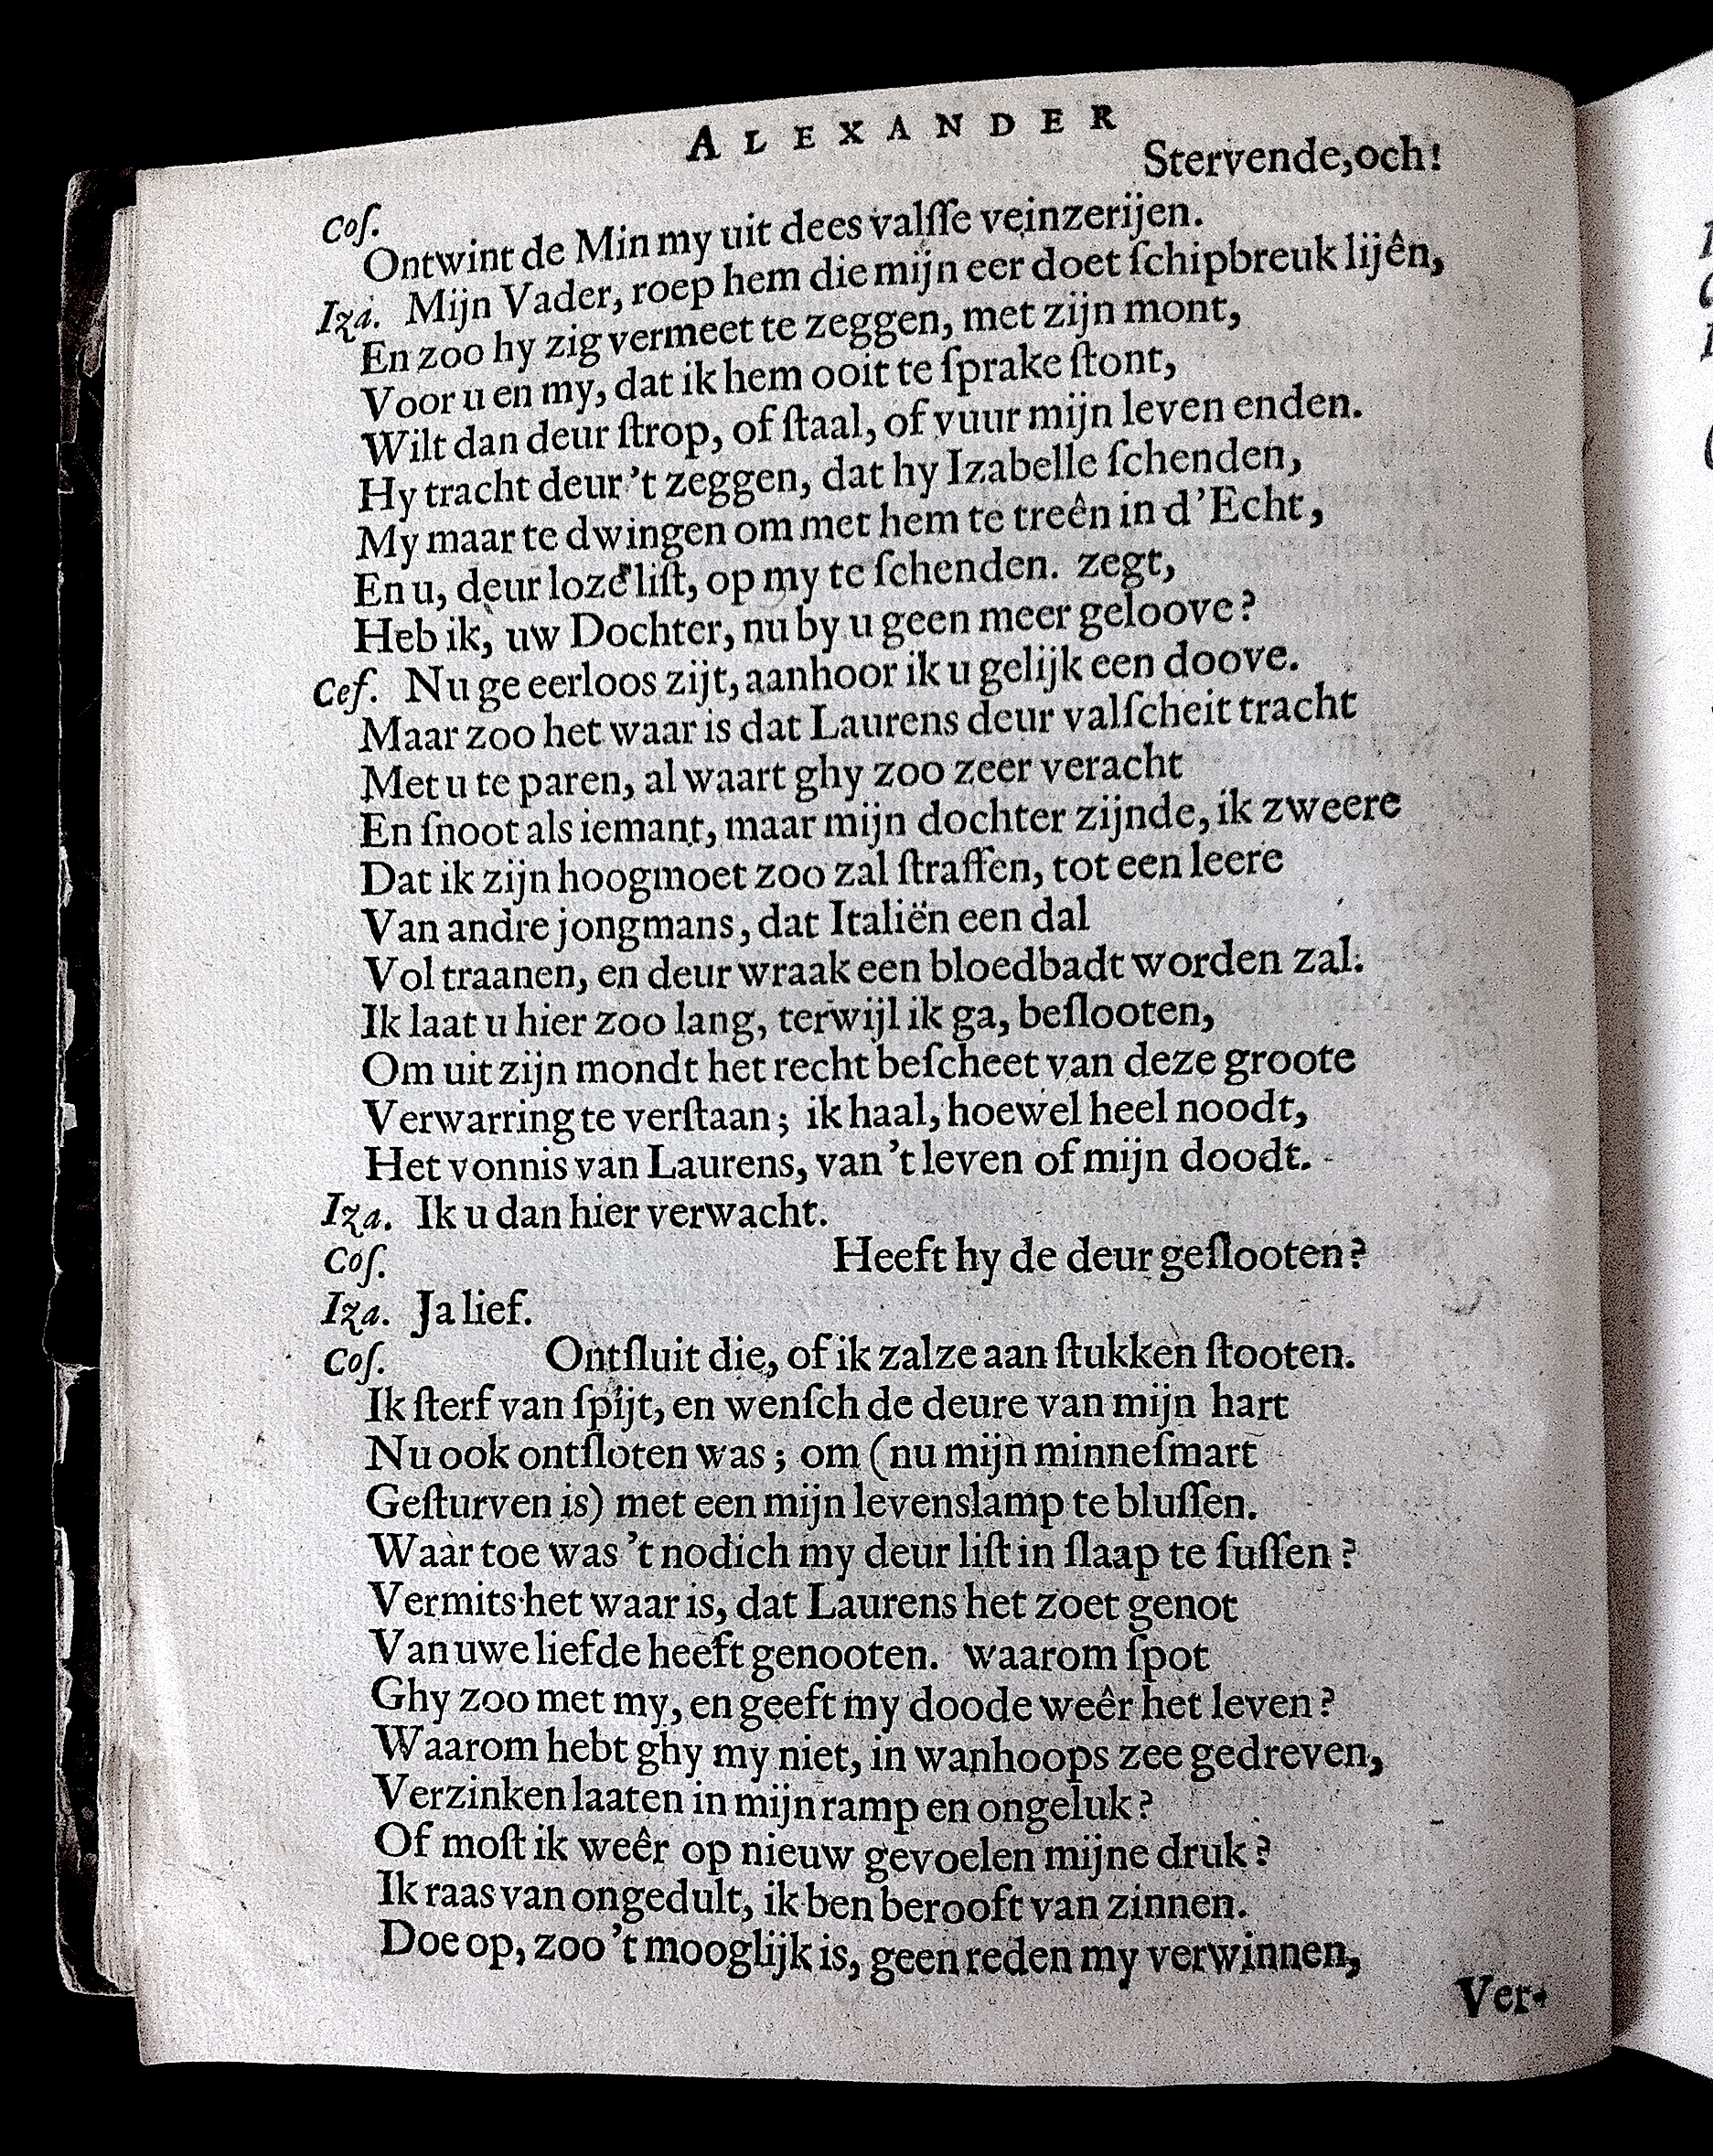 ALEXANDER
Coſ. Stervende, och!
Ontwint de Min my uit dees valſſe veinzerijen.
Iza. Mijn Vader, roep hem die mijn eer doet ſchipbreuk lijên,
En zoo hy zig vermeet te zeggen, met zijn mont,
Voor u en my, dat ik hem ooit te ſprake ſtont,
Wilt dan deur ſtrop, of ſtaal, of vuur mijn leven enden.
Hy tracht deur 't zeggen, dat hy Izabelle ſchenden,
My maar te dwingen om met hem te treên in d'Echt,
En u, deur loze liſt, op my te ſchenden. zegt,
Heb ik, uw Dochter, nu by u geen meer geloove?
Ceſ. Nu ge eerloos zijt, aanhoor ik u gelijk een doove.
Maar zoo het waar is dat Laurens deur valſcheit tracht
Met u te paren, al waart ghy zoo zeer veracht
En ſnoot als iemant, maar mijn dochter zijnde, ik zweere
Dat ik zijn hoogmoet zoo zal ſtraffen, tot een leere
Van andre jongmans, dat Italiën een dal
Vol traanen, en deur wraak een bloedbadt worden zal.
Ik laat u hier zoo lang, terwijl ik ga, beſlooten,
Om uit zijn mondt het recht beſcheet van deze groote
Verwarring te verſtaan; ik haal, hoewel heel noodt,
Het vonnis van Laurens, van 't leven of mijn doodt.
Iza. Ik u dan hier verwacht.
Coſ. Heeft hy de deur geſlooten?
Iza. Ja lief.
Coſ. Ontſluit die, of ik zalze aan ſtukken ſtooten.
Ik ſterf van ſpijt, en wenſch de deure van mijn hart
Nu ook ontſloten was; om (nu mijn minneſmart
Geſturven is) met een mijn levenslamp te bluſſen.
Waar toe was 't nodich my deur liſt in ſlaap te ſuſſen?
Vermits het waar is, dat Laurens het zoet genot
Van uwe liefde heeft genooten. waarom ſpot
Ghy zoo met my, en geeft my doode weêr het leven?
Waarom hebt ghy my niet, in wanhoops zee gedreven,
Verzinken laaten in mijn ramp en ongeluk?
Of moſt ik weêr op nieuw gevoelen mijne druk?
Ik raas van ongedult, ik ben berooft van zinnen.
Doe op, zoo 't mooglijk is, geen reden my verwinnen,
Ver-